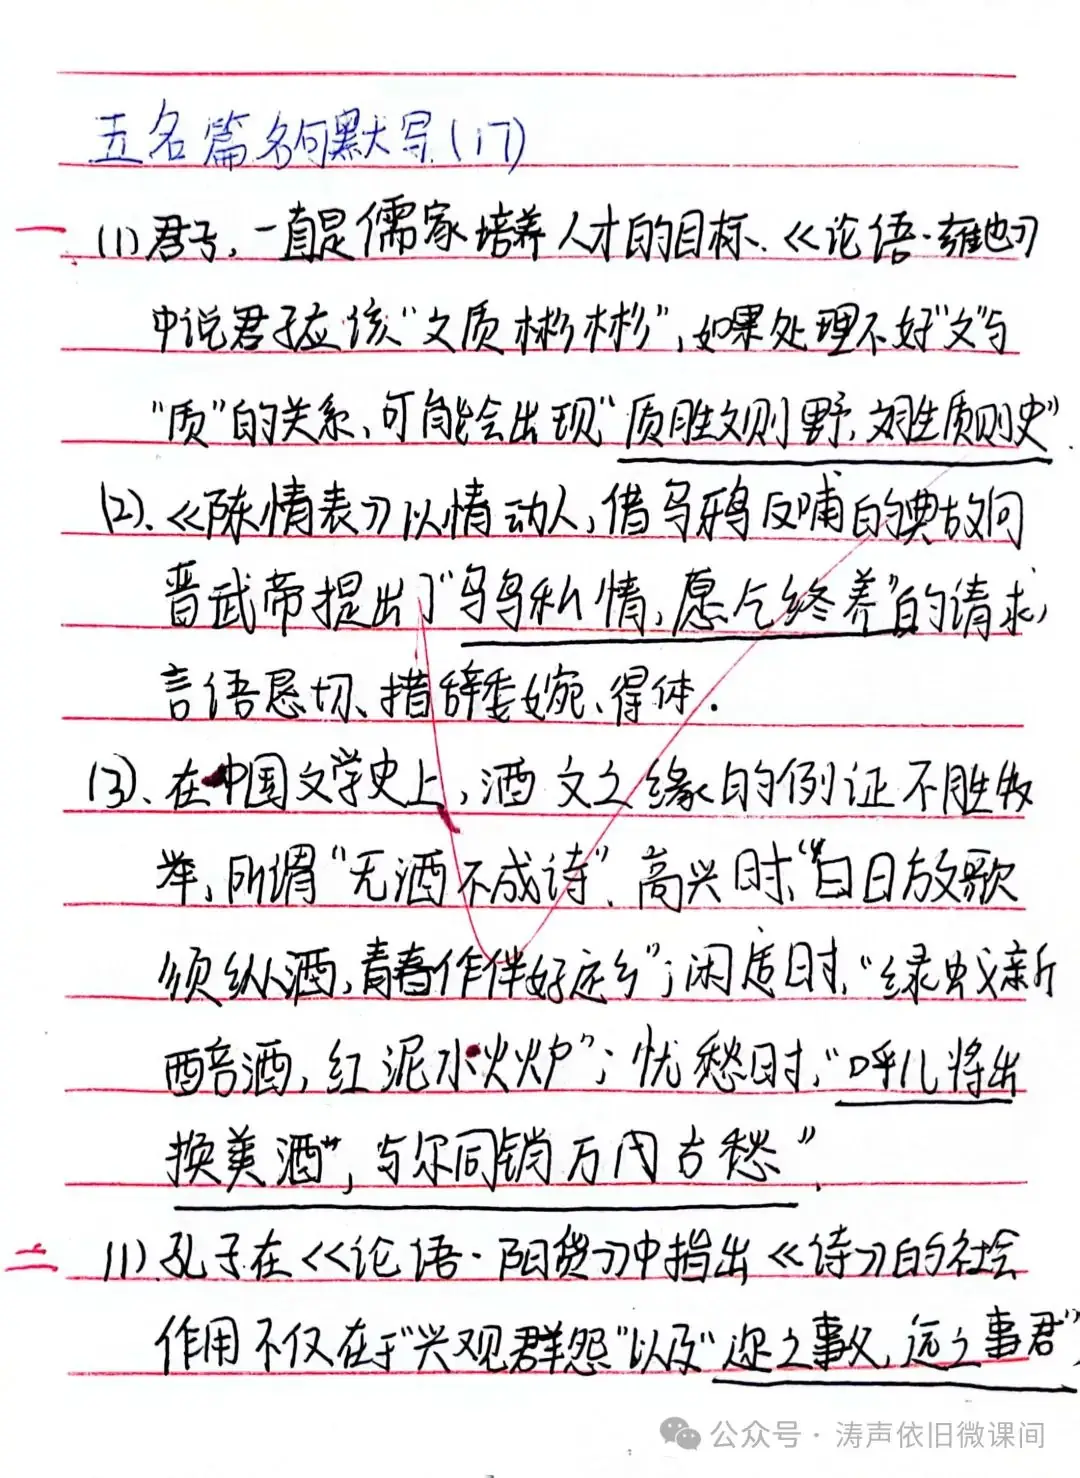 五名篇名句默写(17)
一 (1)君子,一直是儒家培养人才的目标、《论语·雍也》
中说君子应该“文质彬彬”,如果处理不好“文”与
“质”的关系、可能会出现“质胜文则野,文胜质则史”.
(2)、《陈情表》以情动人,借乌鸦反哺的典故向
晋武帝提出了“乌鸟私情,愿乞终养”的请求,
言语恳切、措辞委婉、得体.
(3)、在中国文学史上,酒文之缘的例证不胜枚
举,所谓“无酒不成诗”.高兴时,“白日放歌
须纵酒,青春作伴好还乡”;闲适时,“绿蚁新
醅酒,红泥小火炉”;忧愁时,“呼儿将出
换美酒”,与尔同销万古愁”.
二 (1)、孔子在《论语·阳货》中指出《诗》的社会
作用不仅在于“兴观群怨”以及“迩之事父,远之事君”,
公众号·涛声依旧微课间